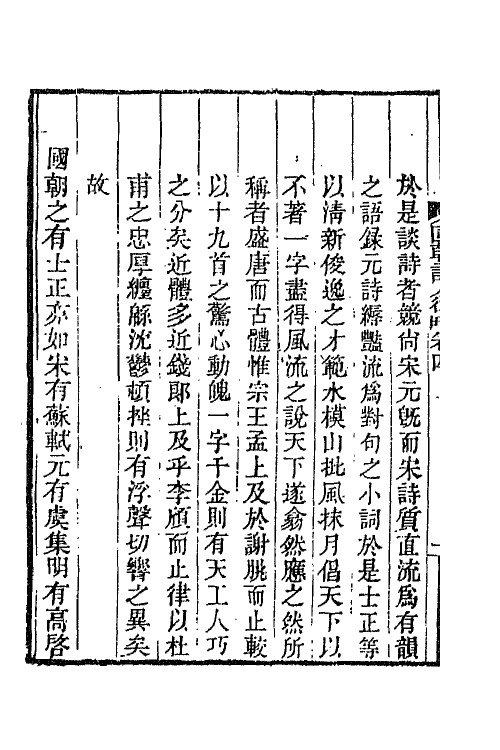 於是談詩者競尙宋元旣而宋詩質直流爲有韻
之語録元詩縟豔流爲對句之小詞於是士正等
以淸新俊逸之才範水模山批風抹月倡天下以
不著一字盡得風流之說天下遂翕然應之然所
稱者盛唐而古體惟宗王孟上及於謝朓而止較
以十九首之驚心動魄一字千金則有天工人巧
之分矣近體多近錢郎上及乎李頎而止律以杜
甫之忠厚纏緜沈鬱頓挫則有浮聲切響之異矣
故
國朝之有士正亦如宋有蘇軾元有虞集明有高啓